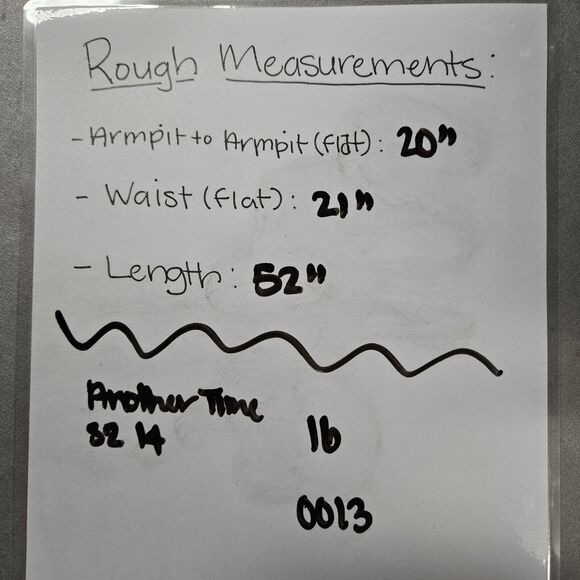 Rough Measurements:
- Armpit to Armpit (flat): 20"
- Waist (flat): 21"
- Length: 52"
Another Time
SZ 14
1b
0013